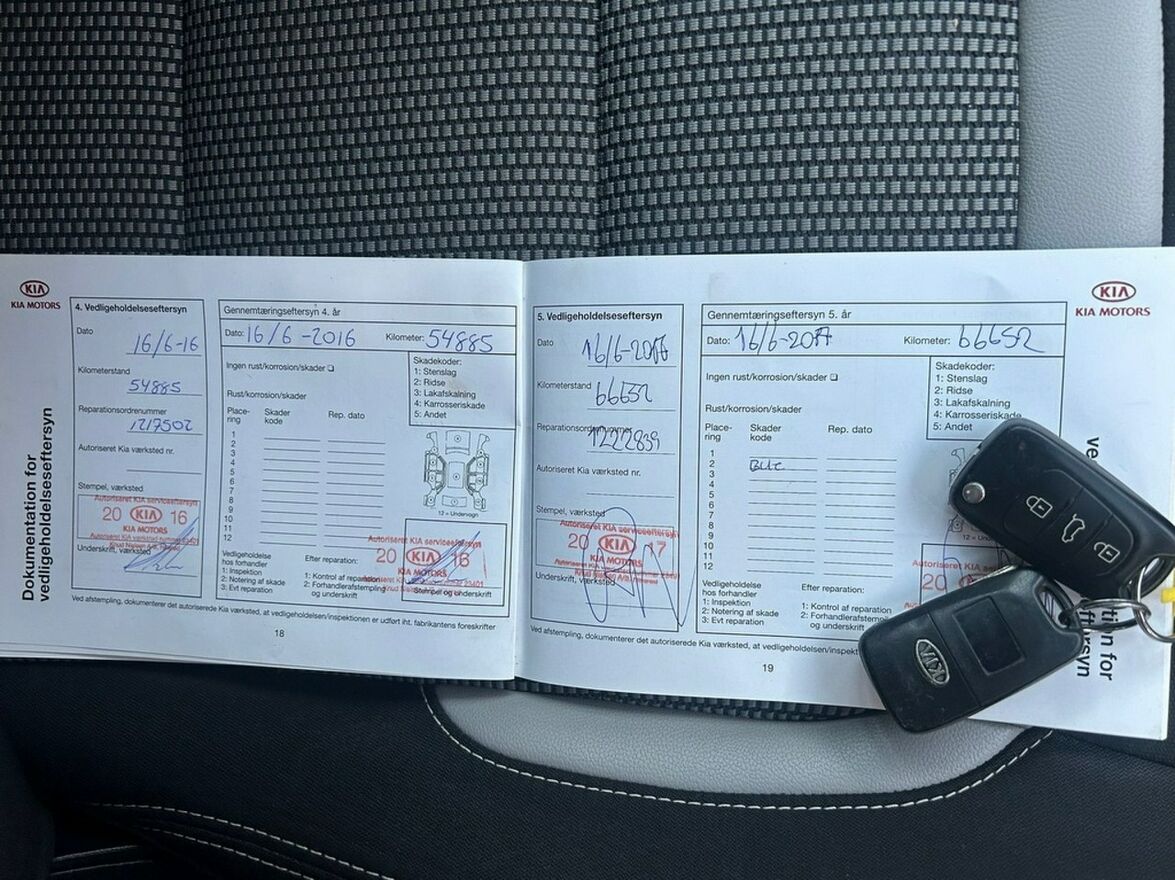 KIA
KIA MOTORS
Dokumentation for
vedligeholdelseseftersyn
4. Vedligeholdelseseftersyn
Dato
16/6-16
Kilometerstand
54885
Reparationsordrenummer
1217502
Autoriseret Kia værksted nr.
Stempel, værksted
Autoriseret KIA serviceeftersyn
20 KIA 16
KIA MOTORS
Underskrift, værksted
Gennemtæringseftersyn 4. år
Dato: 16/6-2016 Kilometer: 54885
Ingen rust/korrosion/skader
Skadekoder:
1: Stenslag
2: Ridse
3: Lakafskalning
4: Karrosseriskade
5: Andet
Rust/korrosion/skader
Place- Skader Rep. dato
ring kode
1
2
3
4
5
6
7
8
9
10
11
12
12 = Undervogn
Vedligeholdelse
hos forhandler
1: Inspektion
2: Notering af skade
3: Evt reparation
Efter reparation:
1: Kontrol af reparation
2: Forhandlerafstempling
og underskrift
Autoriseret KIA serviceeftersyn
20 KIA 16
KIA MOTORS
Stempel og underskrift
Ved afstempling, dokumenterer det autoriserede Kia værksted, at vedligeholdelsen/inspektionen er udført iht. fabrikantens foreskrifter
18
5. Vedligeholdelseseftersyn
Dato
Kilometerstand
66652
Reparationsordrenummer
1222839
Autoriseret Kia værksted nr.
Stempel, værksted
Autoriseret KIA serviceeftersyn
20 KIA 17
KIA MOTORS
Underskrift, værksted
Gennemtæringseftersyn 5. år
Dato: 16/6-2017 Kilometer: 66652
Ingen rust/korrosion/skader
Skadekoder:
1: Stenslag
2: Ridse
3: Lakafskalning
4: Karrosseriskade
5: Andet
Rust/korrosion/skader
Place- Skader Rep. dato
ring kode
1
2
3
4
5
6
7
8
9
10
11
12
Vedligeholdelse
hos forhandler
1: Inspektion
2: Notering af skade
3: Evt reparation
Efter reparation:
1: Kontrol af reparation
2: Forhandlerafstempl
og underskrift
20
Ved afstempling, dokumenterer det autoriserede Kia værksted, at vedligeholdelsen/inspekt
19
KIA
KIA MOTORS
KIA